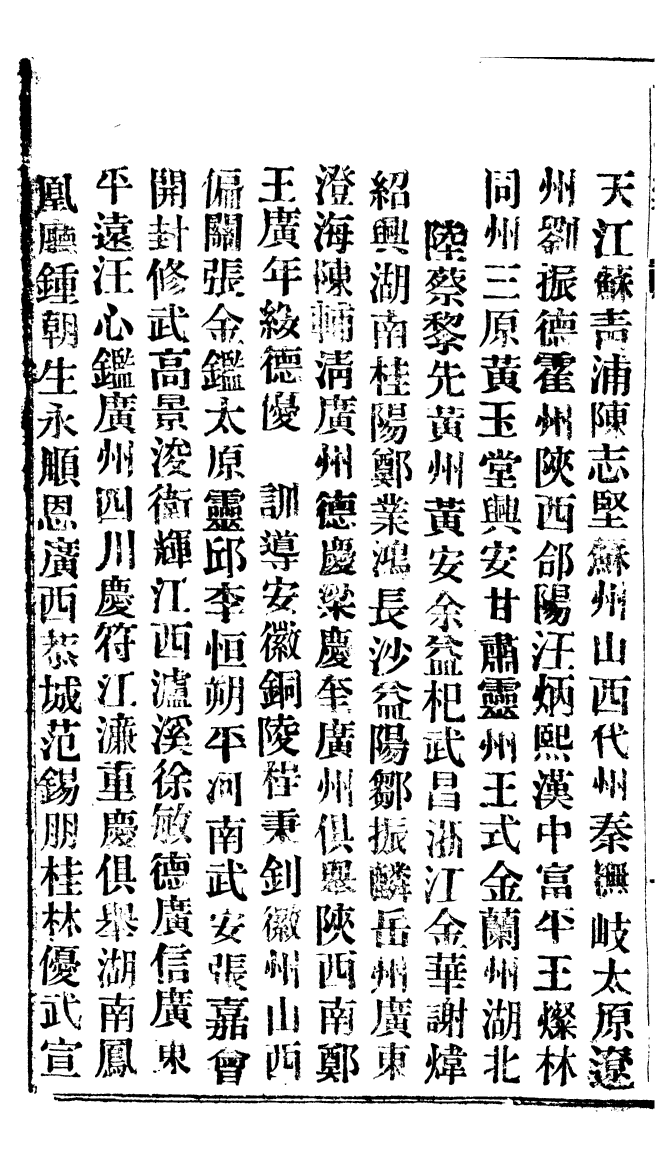 天江蘇青浦陳志堅蘇州山西代州秦憮岐太原遼
州劉振德霍州陝西郃陽汪炳熙漢中富平王燦林
同州三原黃玉堂興安甘肅靈州王式金蘭州湖北
陸蔡黎先黃州黃安余益杞武昌浙江金華謝煒
紹興湖南桂陽鄭業鴻長沙益陽鄒振麟岳州廣東
澄海陳輔清廣州德慶梁慶奎廣州俱舉陝西南鄭
王廣年綏德優　訓導安徽銅陵桂秉釗徽州山西
偏關張金鑑太原靈邱李恒朔平河南武安張嘉會
開封修武高景浚衛輝江西瀘溪徐敏德廣信廣東
平遠汪心鑑廣州四川慶符江濂重慶俱舉湖南鳳
凰廳鍾朝生永順恩廣西恭城范錫朋桂林優武宣